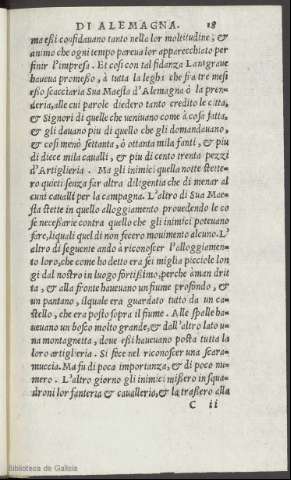 DI ALEMAGNA. 18
ma eßi confidauano tanto nella lor moltitudine, &
animo che ogni tempo pareua lor apparecchiato per
finir l'impresa. Et cosi con tal fidanza Lantgraue
haueua promesso, à tutta la legha che fra tre mesi
eßo scacciaria Sua Maestà d'Alemagna ò la pren-
deria, alle cui parole diedero tanto credito le citta,
& Signori di quelle che ueniuano come à cosa fatta,
& gli dauano piu di quello che gli domandauano,
& cosi menò settanta, ò ottanta mila fanti, & piu
di diece mila caualli, & piu di cento trenta pezzi
d'Artiglieria. Ma gli inimici quella notte stette-
ro quieti senza far altra diligentia che di menar al
cuni caualli per la campagna. L'altro dì Sua Mae-
sta stette in quello alloggiamento prouedendo le co
se necessarie contra quello che gli inimici poteuano
fare, liquali quel dì non fecero mouimento alcuno. L'
altro dì seguente andò à riconoscer l'alloggiamen-
to loro, che come ho detto era sei miglia picciole lon
gi dal nostro in luogo fortißimo, perche à man drit
ta, & alla fronte haueuano un fiume profondo, &
un pantano, ilquale era guardato tutto da un ca-
stello, che era posto sopra il fiume. Alle spalle ha-
ueuano un bosco molto grande, & dall'altro lato u-
na montagnetta, doue eßi haueuano posta tutta la
loro artiglieria. Si fece nel riconoscer una scara-
muccia. Ma fu di poca importanza, & di poco nu-
mero. L'altro giorno gli inimici mißero in squa-
droni lor fanteria & cauallerie, & la traßero alla
C ii
Biblioteca de Galicia